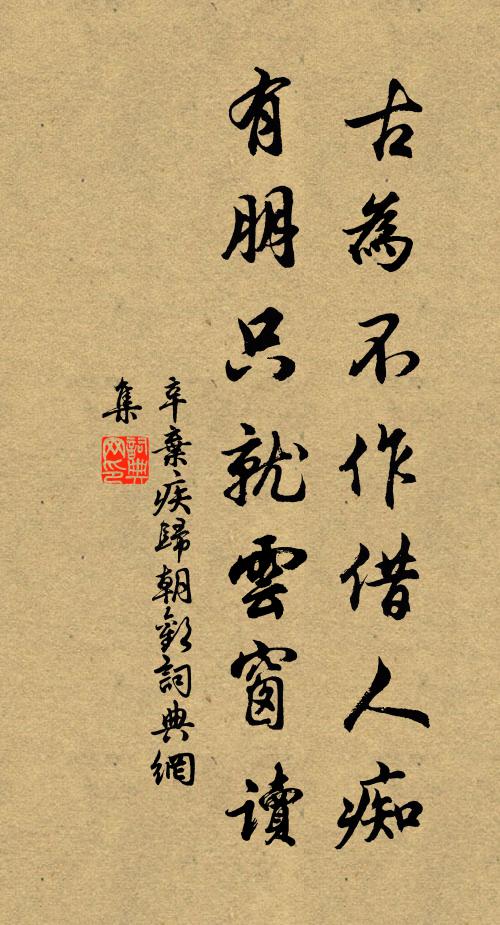 古為不作借人痴
有朋只就雲窗讀
辛棄疾歸朝歡詞典網
集
詞典网印